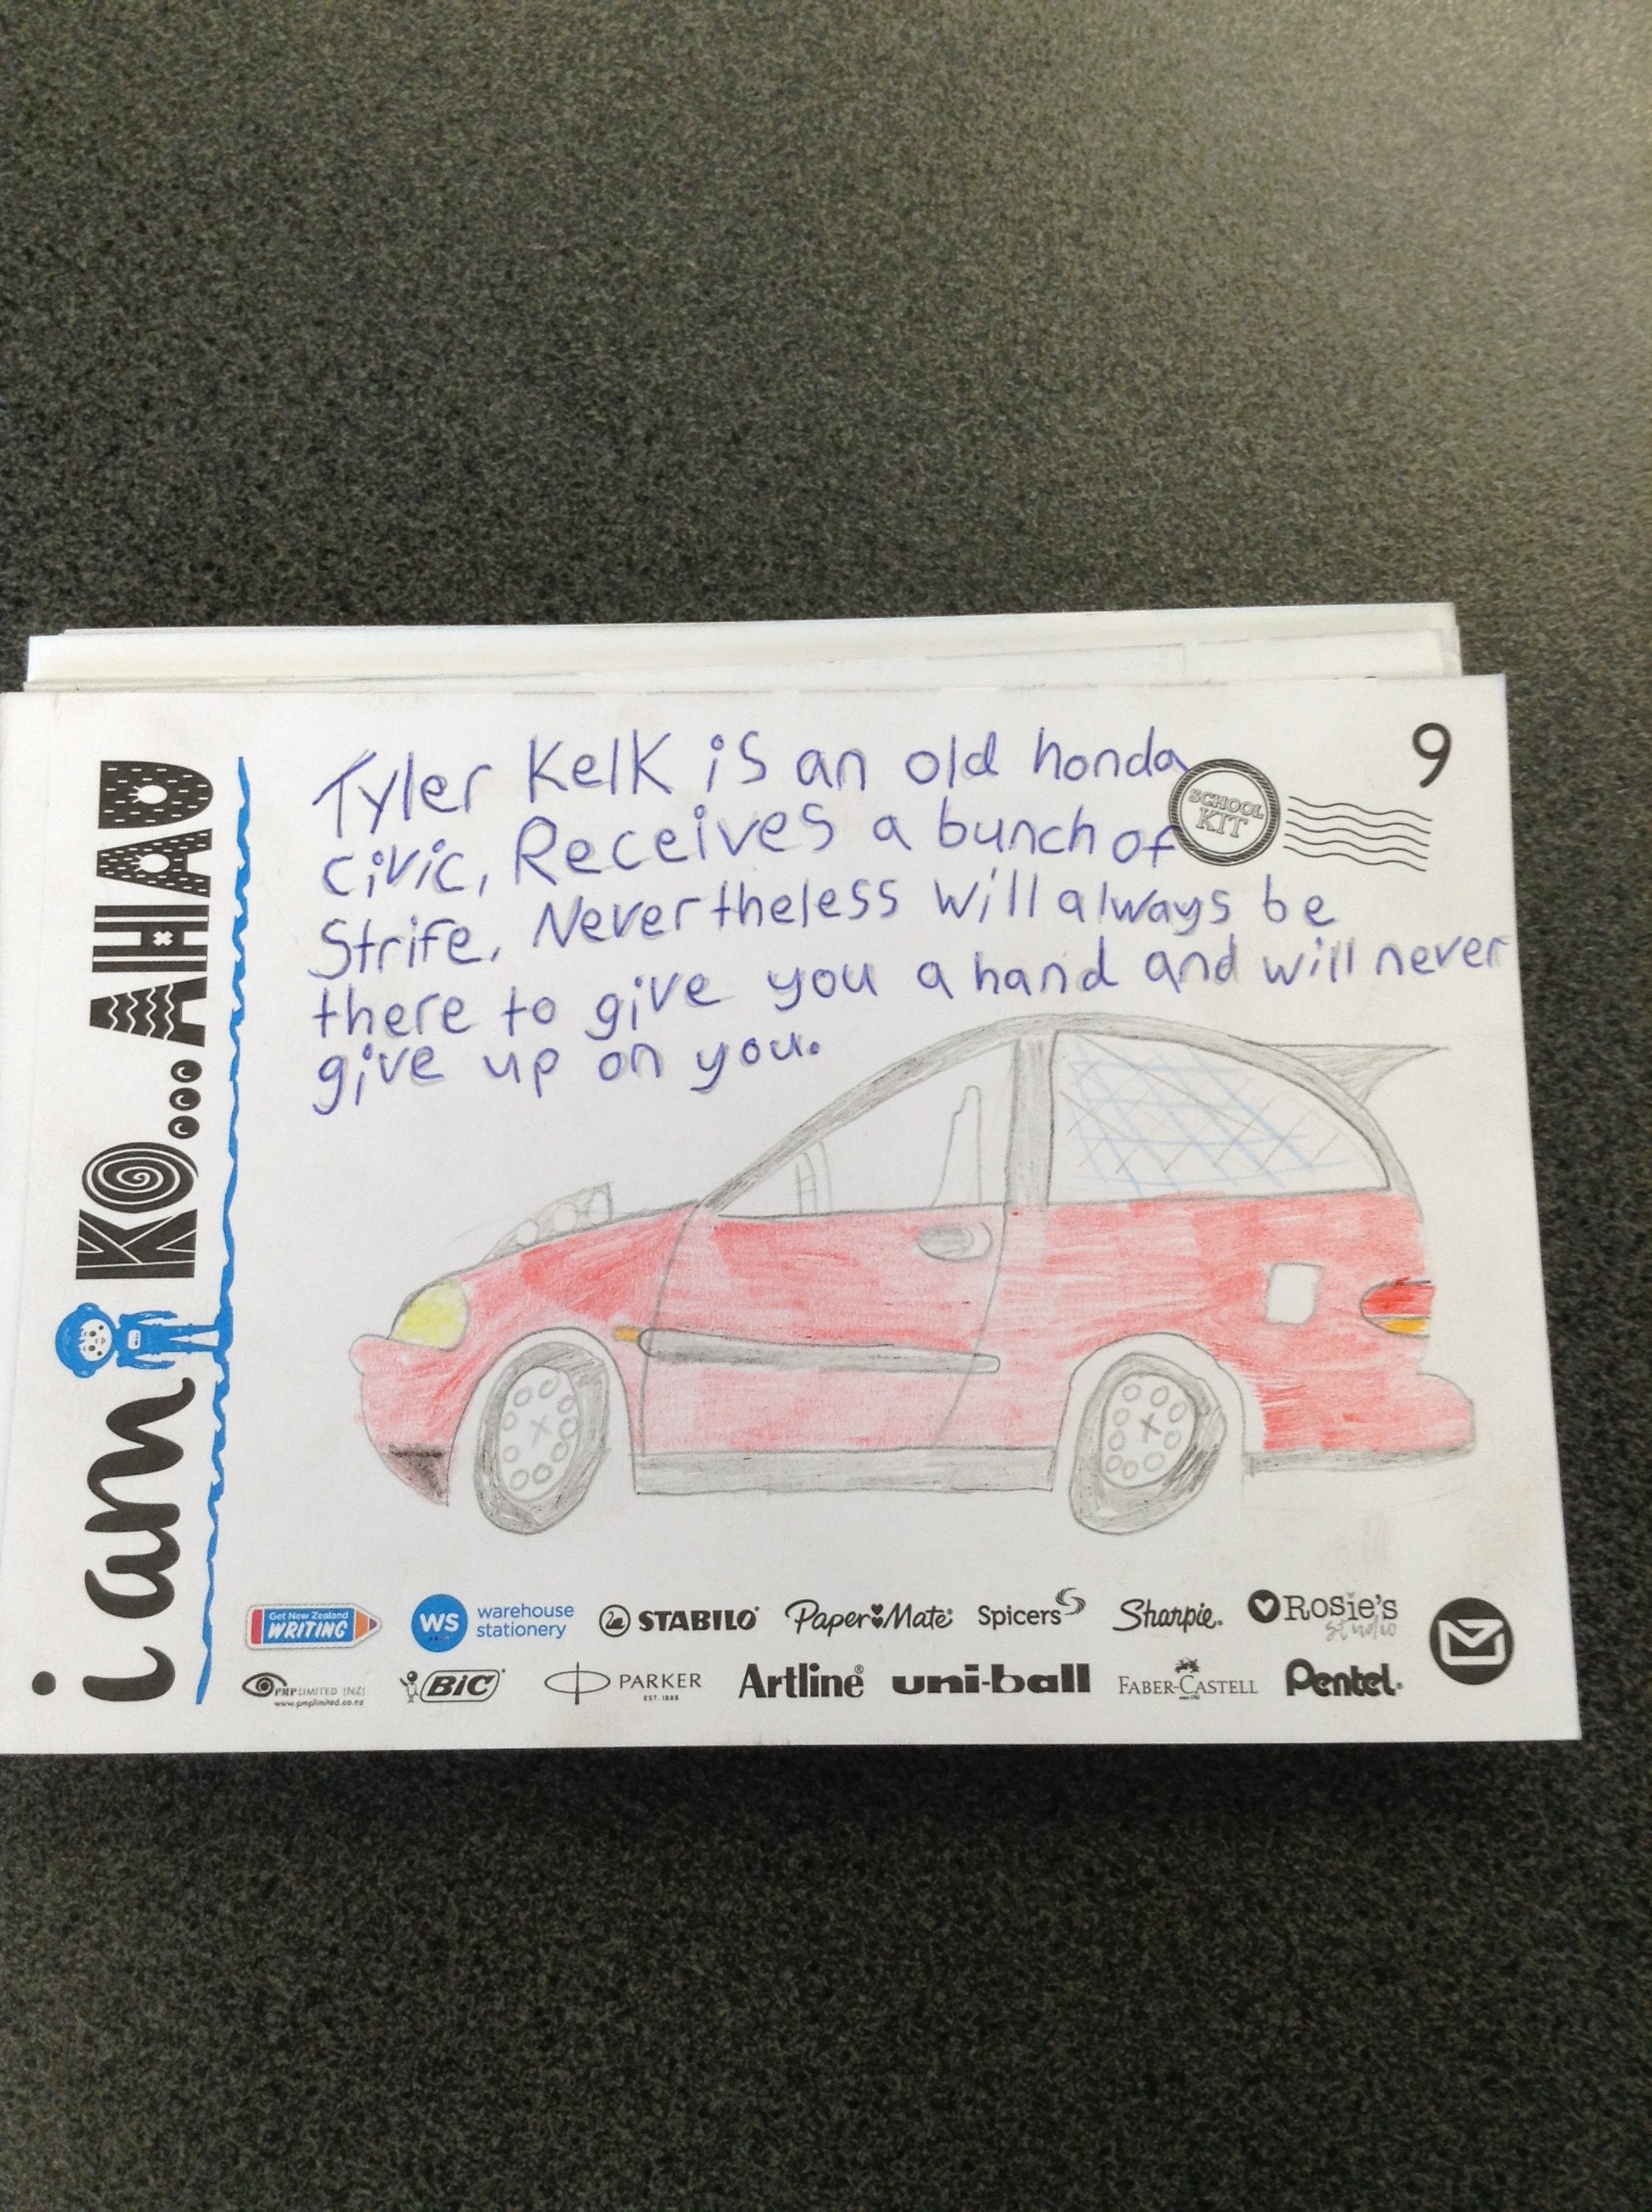 Tyler Kelk is an old honda
civic, Receives a bunch of
Strife, Nevertheless will always be
there to give you a hand and will never
give up on you.
9
SCHOOL
KIT
i am KO...AHAU
Get New Zealand
WRITING
WS
warehouse
stationery
STABILO
Paper Mate
Spicers
Sharpie.
Rosie's
studio
PMP LIMITED (NZ)
www.pmplimited.co.nz
BIC
PARKER
EST. 1888
Artline
uni-ball
FABER-CASTELL
since 1761
Pentel